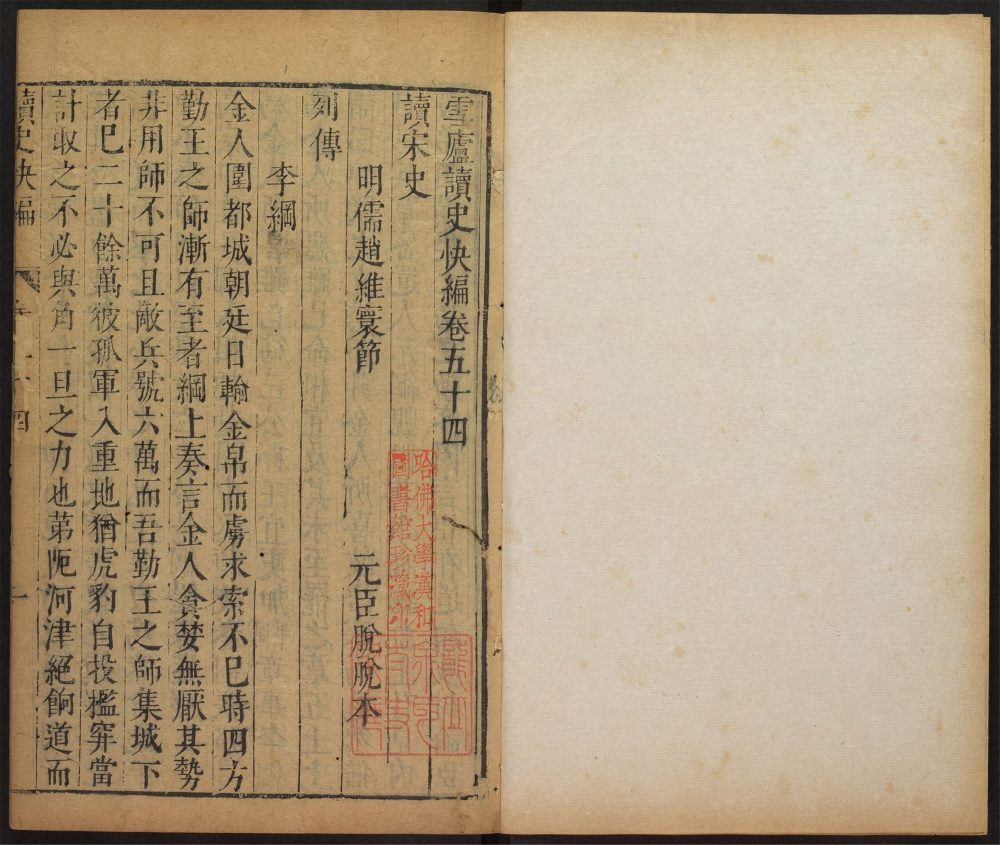 雪廬讀史快編卷五十四
讀宋史
明儒趙維寰節
元臣脫脫本
列傳
李綱
金人圍都城朝廷日輸金帛而虜求索不已時四方
勤王之師漸有至者綱上奏言金人貪婪無厭其勢
非用師不可且敵兵號六萬而吾勤王之師集城下
者已二十餘萬彼孤軍入重地猶虎豹自投檻穽當
計取之不必與角一旦之力也第阨河津絕餉道而
讀史快編
四
一
哈佛大學漢和
圖書館珍藏印